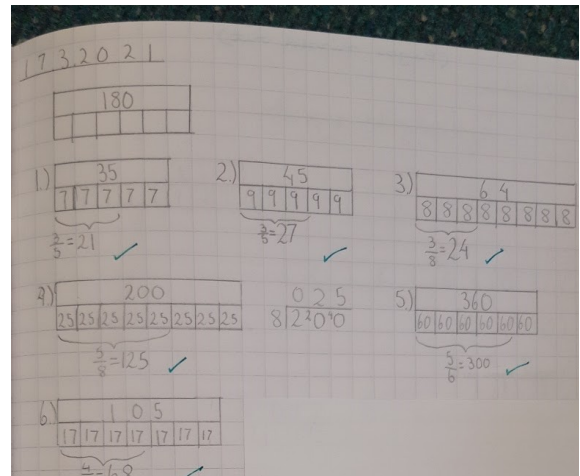 17.3.2021
180
1.) 35
7 7 7 7 7
3/5 = 21
2.) 45
9 9 9 9 9
3/5 = 27
3.) 64
8 8 8 8 8 8 8 8
3/8 = 24
4.) 200
25 25 25 25 25 25 25 25
5/8 = 125
025
8 2 2 0 4 0
5.) 360
60 60 60 60 60 60
5/6 = 300
6.) 105
17 17 17 17 17 17 17
4/ = 68